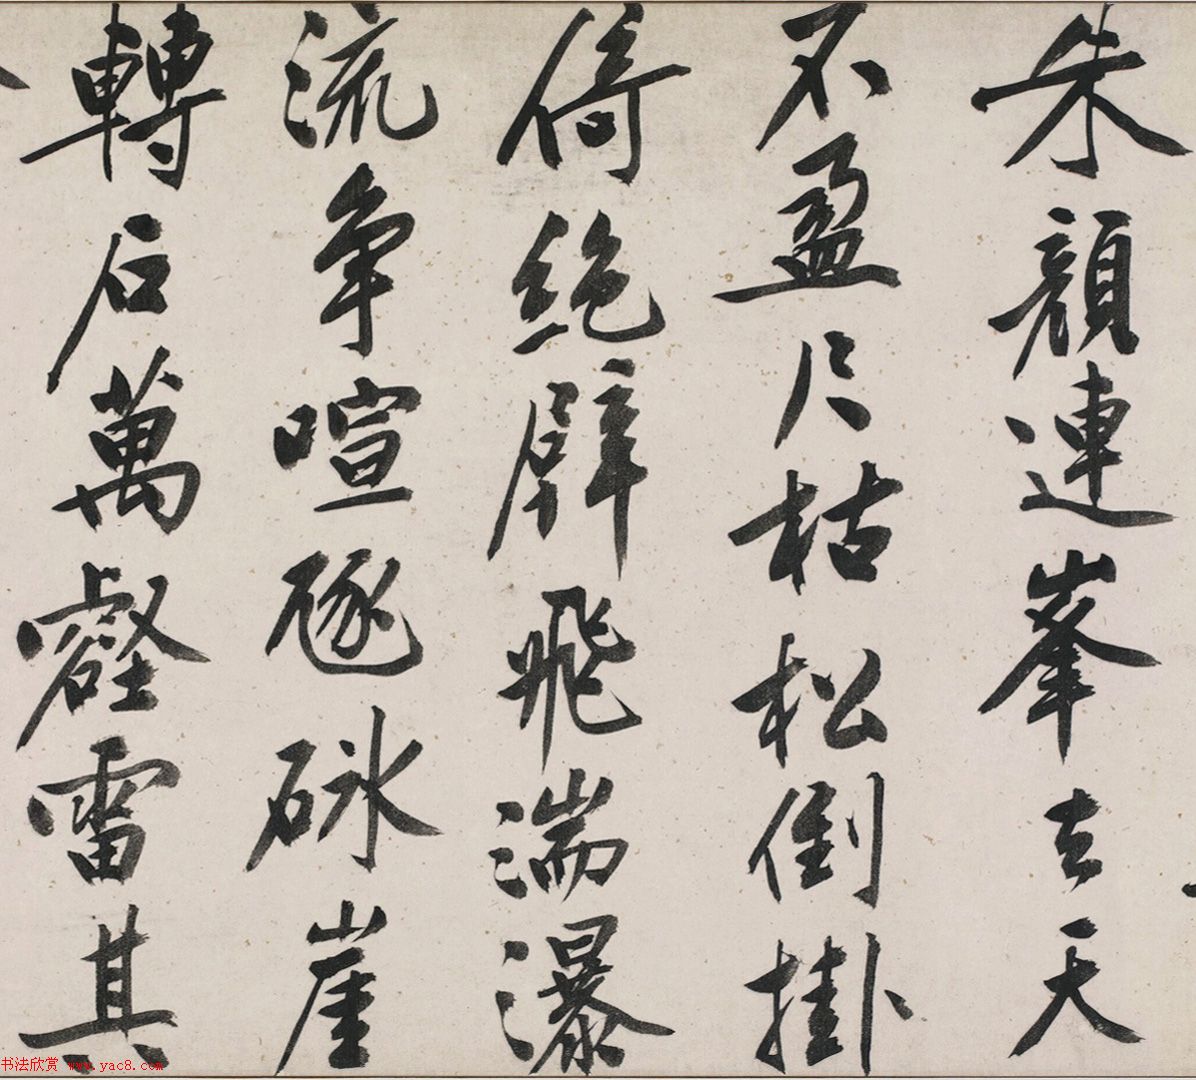 朱顏連峯去天
不盈尺枯松倒掛
倚絶壁飛湍瀑
流争喧豗砯崖
轉石萬壑雷其
书法欣赏 www.yac8.com